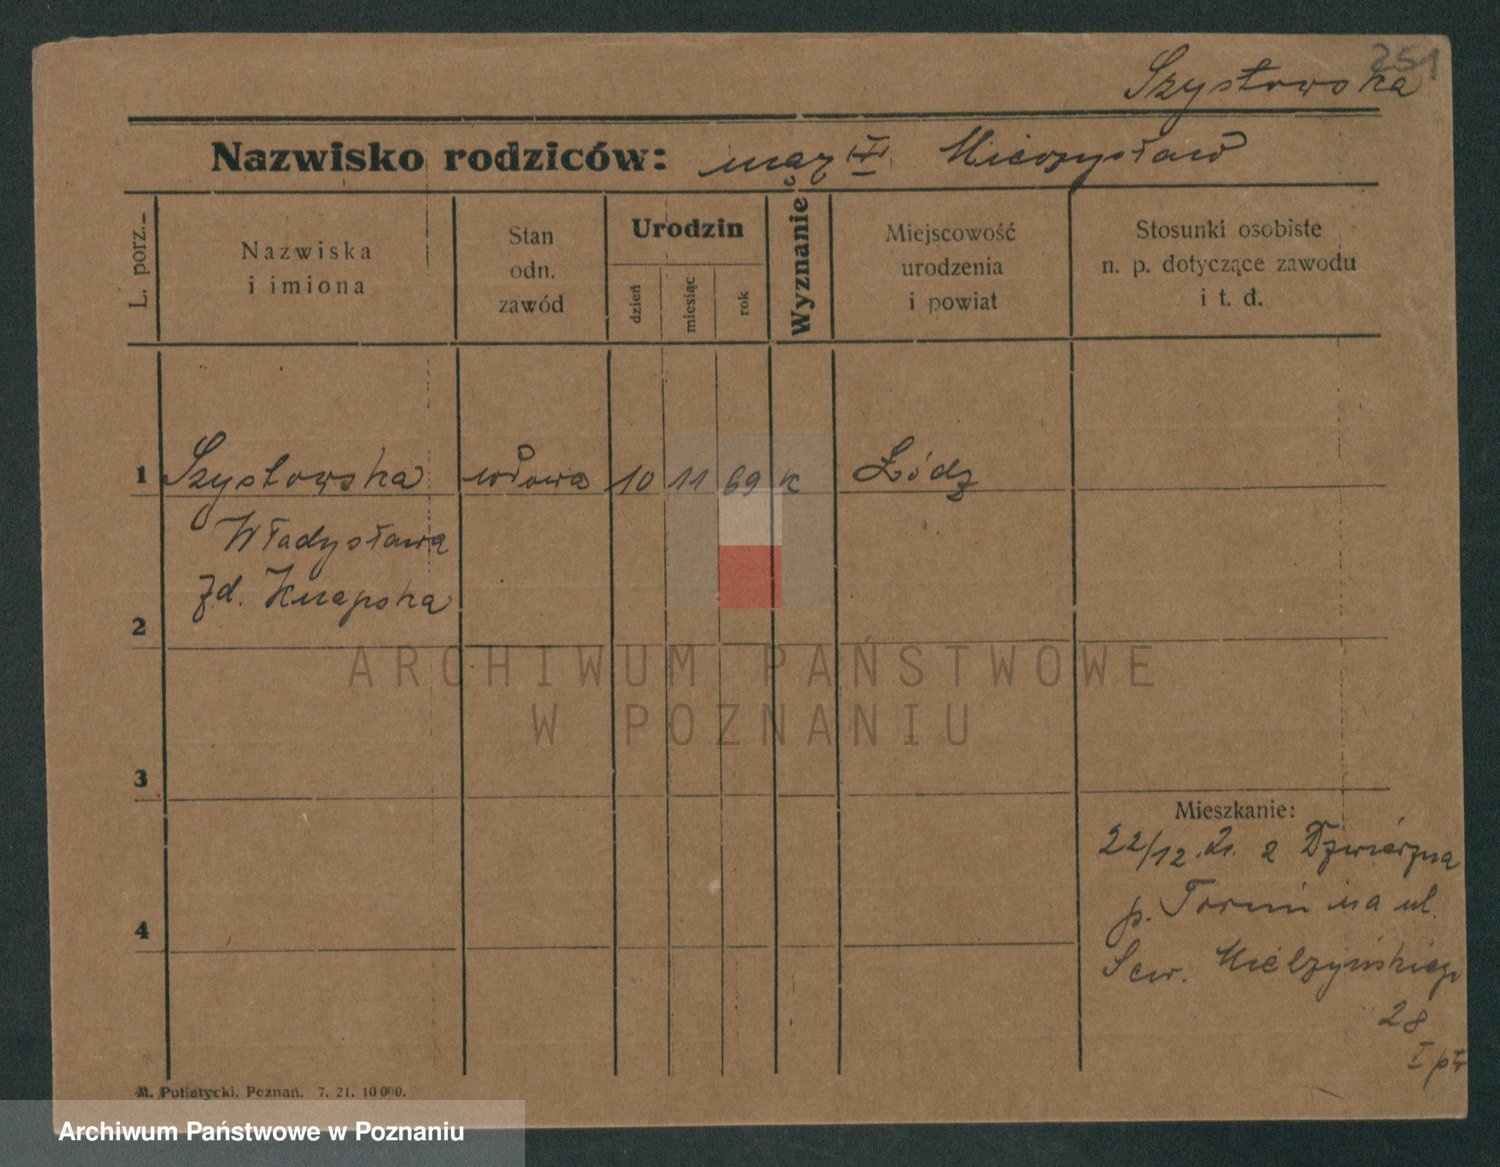 251
Szysłowska
Nazwisko rodziców: mąż III Mieczysław
L. porz.
Nazwiska
i imiona
Stan
odn.
zawód
Urodzin
dzień
miesiąc
rok
Wyznanie
Miejscowość
urodzenia
i powiat
Stosunki osobiste
n. p. dotyczące zawodu
i t. d.
1 Szysłowska wdowa 10 11 69 k Łódz
Władysława
zd. Knapska
2
ARCHIWUM PAŃSTWOWE
W POZNANIU
3
Mieszkanie:
22/12. 21. z Dzwierzna
p. Toruń na ul.
4
Sew. Mielzyńskiego
28
I ptr
M. Putiatycki, Poznań. 7. 21. 10 000.
Archiwum Państwowe w Poznaniu